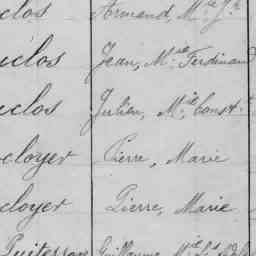 clos Armand, M.ie J.h
uclos Jean, M.ie Ferdinand
uclos Julien, M.ie Const.t
cloyer Pierre, Marie
cloyer Pierre, Marie
Guillaume, M.ie